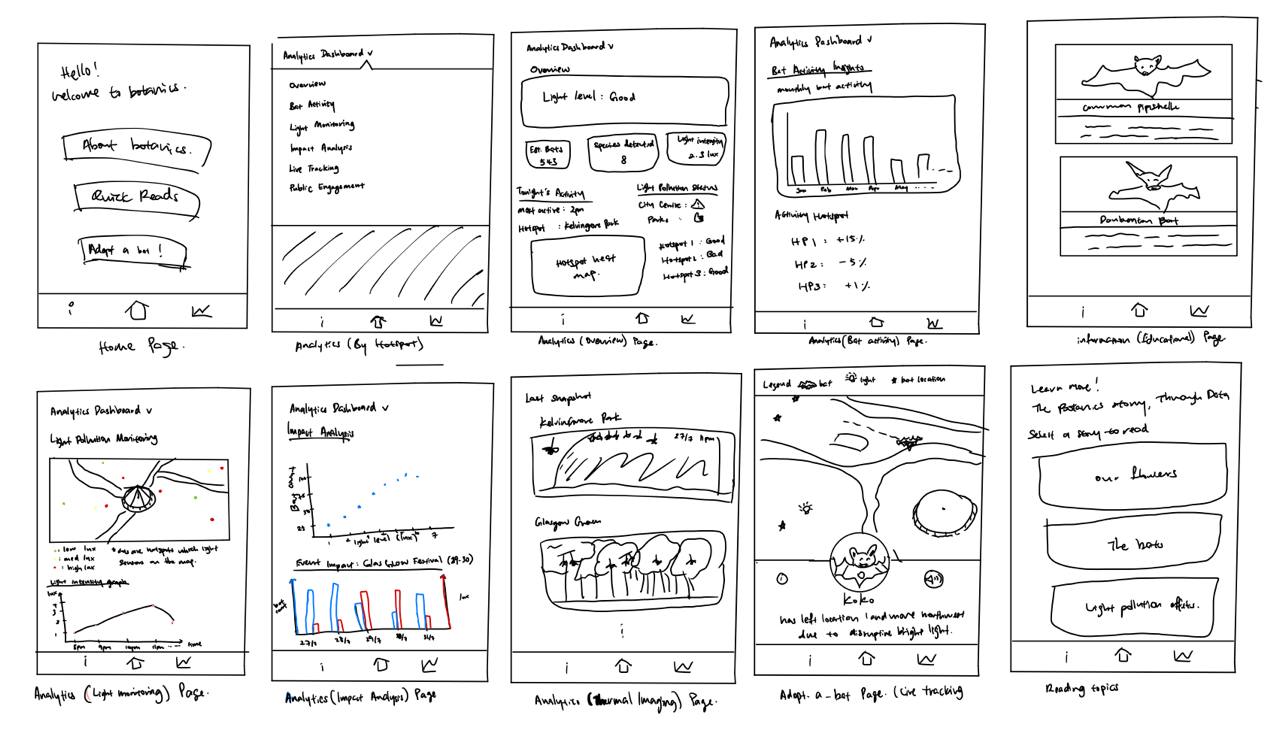 Hello!
welcome to botanics.
About botanics.
Quick Reads
Adopt a bat !
i
Home Page.
Analytics Dashboard v
Overview
Bat Activity
Light Monitoring
Impact Analysis
Live Tracking
Public Engagement
i
Analytics (By Hotspot)
Analytics Dashboard v
Overview
Light Level : Good
Est. Bats
543
Species detected
8
Light intensity
2.3 lux
Tonight's Activity
most active : 2pm
Hotspot : Kelvingrove Park
Light Pollution Status
City Centre :
Parks :
Hotspot heat
map.
Hotspot 1 : Good
Hotspot 2 : Bad
Hotspot 3 : Good
i
Analytics (Overview) Page.
Analytics Dashboard v
Bat Activity Insights
monthly bat activity
Jan Feb Mar Apr May
Activity Hotspot
HP 1 : +15%
HP2 : -5%
HP3 : +1%
i
Analytics (Bat activity) Page.
common Pipistrelle
Daubenton Bat
i
information (Educational) Page
Analytics Dashboard v
Light Pollution Monitoring
: low lux
: med lux
: high lux
hotspots which light
sensors on the map.
Light intensity graph
lux
8pm 9pm 10pm 11pm
time
i
Analytics (Light monitoring) Page.
Analytics Dashboard v
Impact Analysis
light level (lux)
7
Event Impact : Glasgow Festival (29-30)
bat count
lux
27/7 28/7 29/7
i
Analytics (Impact Analysis) Page
Last Snapshot
Kelvingrove Park
27/7 11pm
Glasgow Green
i
Analytics (Thermal Imaging) Page.
Legend bat light bat location
KOKO
has left location 1 and move northwest
due to disruptive bright light.
i
Adopt-a-bat Page. (Live tracking
Learn More!
The Botanics story, Through Data
Select a story to read
our flowers
The bats
Light pollution effects.
i
Reading topics